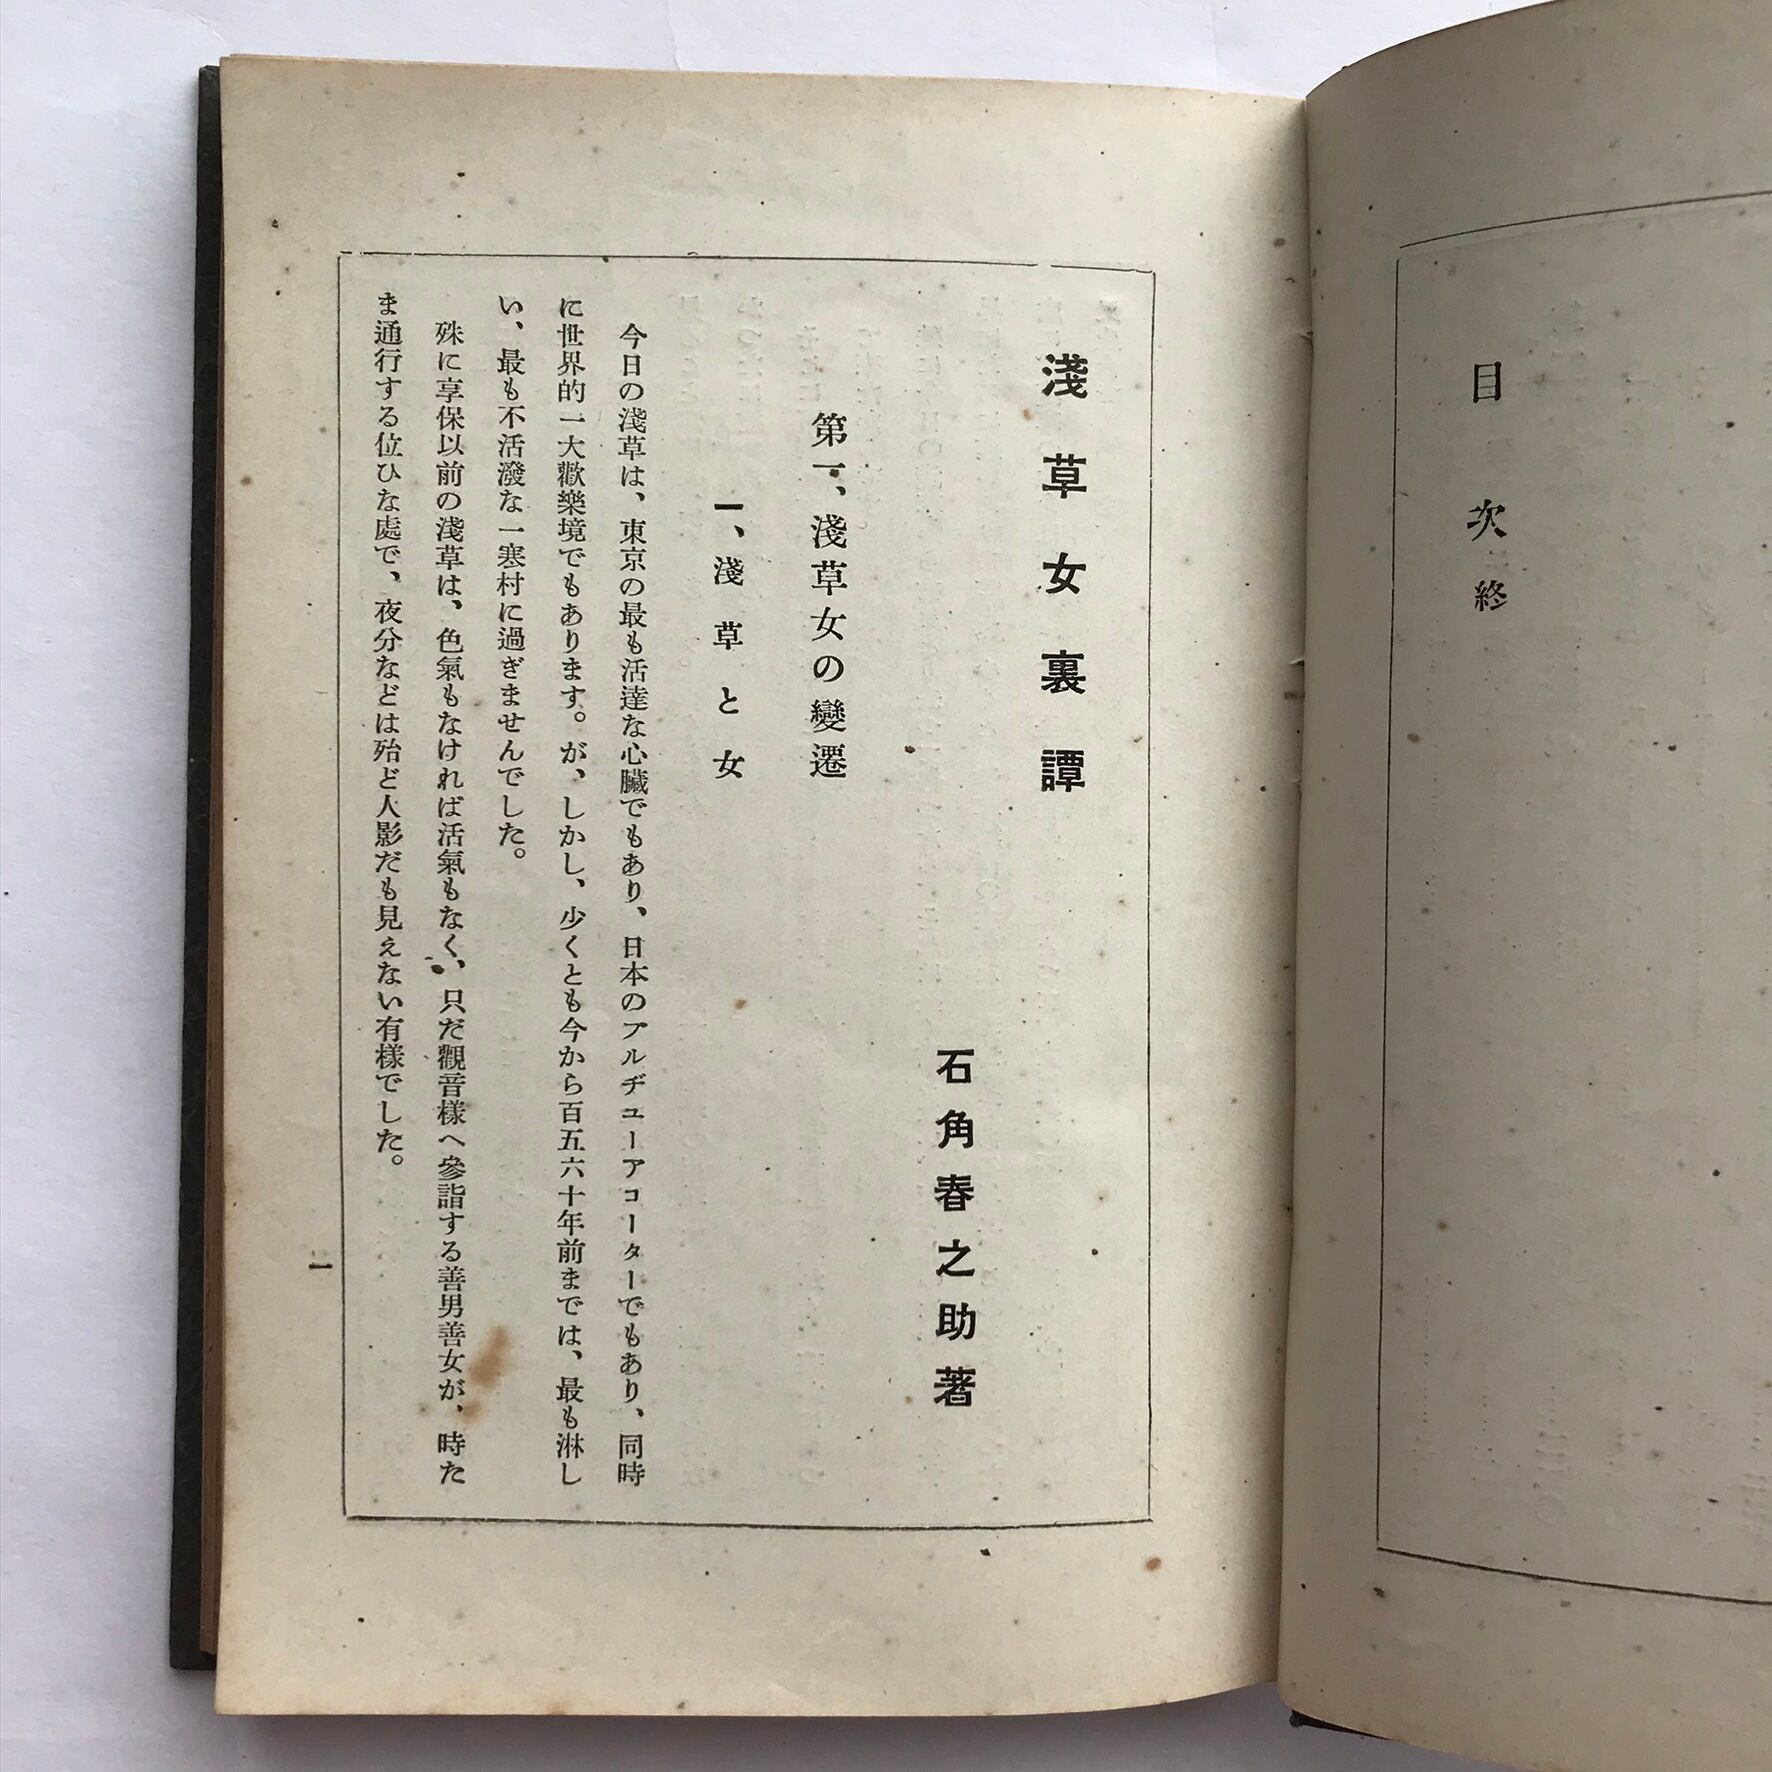 目次終
淺草女裏譚
石角春之助著
第一、淺草女の變遷
一、淺草と女
今日の淺草は、東京の最も活達な心臟でもあり、日本のアルヂユーアコーターでもあり、同時
に世界的一大歡樂境でもあります。が、しかし、少くとも今から百五六十年前までは、最も淋し
い、最も不活潑な一寒村に過ぎませんでした。
殊に享保以前の淺草は、色氣もなければ活氣もなく、只だ觀音樣へ參詣する善男善女が、時た
ま通行する位ひな處で、夜分などは殆ど人影だも見えない有樣でした。
一